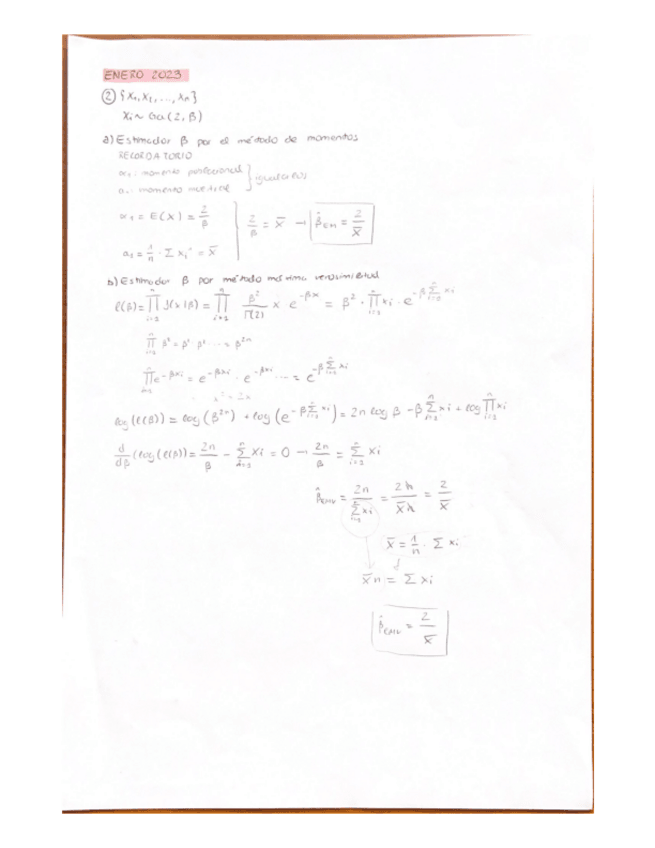 ENERO 2023
② {X₁, X₂, ..., Xₙ}
Xi ~ Ga(2, β)
a) Estimador β por el método de momentos
RECORDATORIO
α₁: momento poblacional
a₁: momento muestral } igualarlos
α₁ = E(X) = 2/β
a₁ = 1/n · Σ xi¹ = x̄ } 2/β = x̄ → β̂EM = 2/x̄
b) Estimador β por método máxima verosimilitud
ℓ(β) = ∏ᵢ₌₁ⁿ f(x|β) = ∏ᵢ₌₁ⁿ β²/Γ(2) x e^(-βx) = β² · ∏ᵢ₌₁ⁿ xi · e^(-β Σᵢ₌₁ⁿ xi)
∏ᵢ₌₁ⁿ β² = β² · β² · β² ... = β²ⁿ
∏ e^(-βxi) = e^(-βxi) · e^(-βxi) ... = e^(-β Σᵢ₌₁ⁿ xi)
log(ℓ(β)) = log(β²ⁿ) + log(e^(-β Σᵢ₌₁ⁿ xi)) = 2n log β - β Σᵢ₌₁ⁿ xi + log ∏ᵢ₌₁ⁿ xi
d/dβ (log(ℓ(β)) = 2n/β - Σᵢ₌₁ⁿ xi = 0 → 2n/β = Σᵢ₌₁ⁿ xi
β̂EMV = 2n/Σᵢ₌₁ⁿ xi = 2n/x̄n = 2/x̄
x̄ = 1/n · Σ xi
x̄n = Σ xi
β̂EMV = 2/x̄